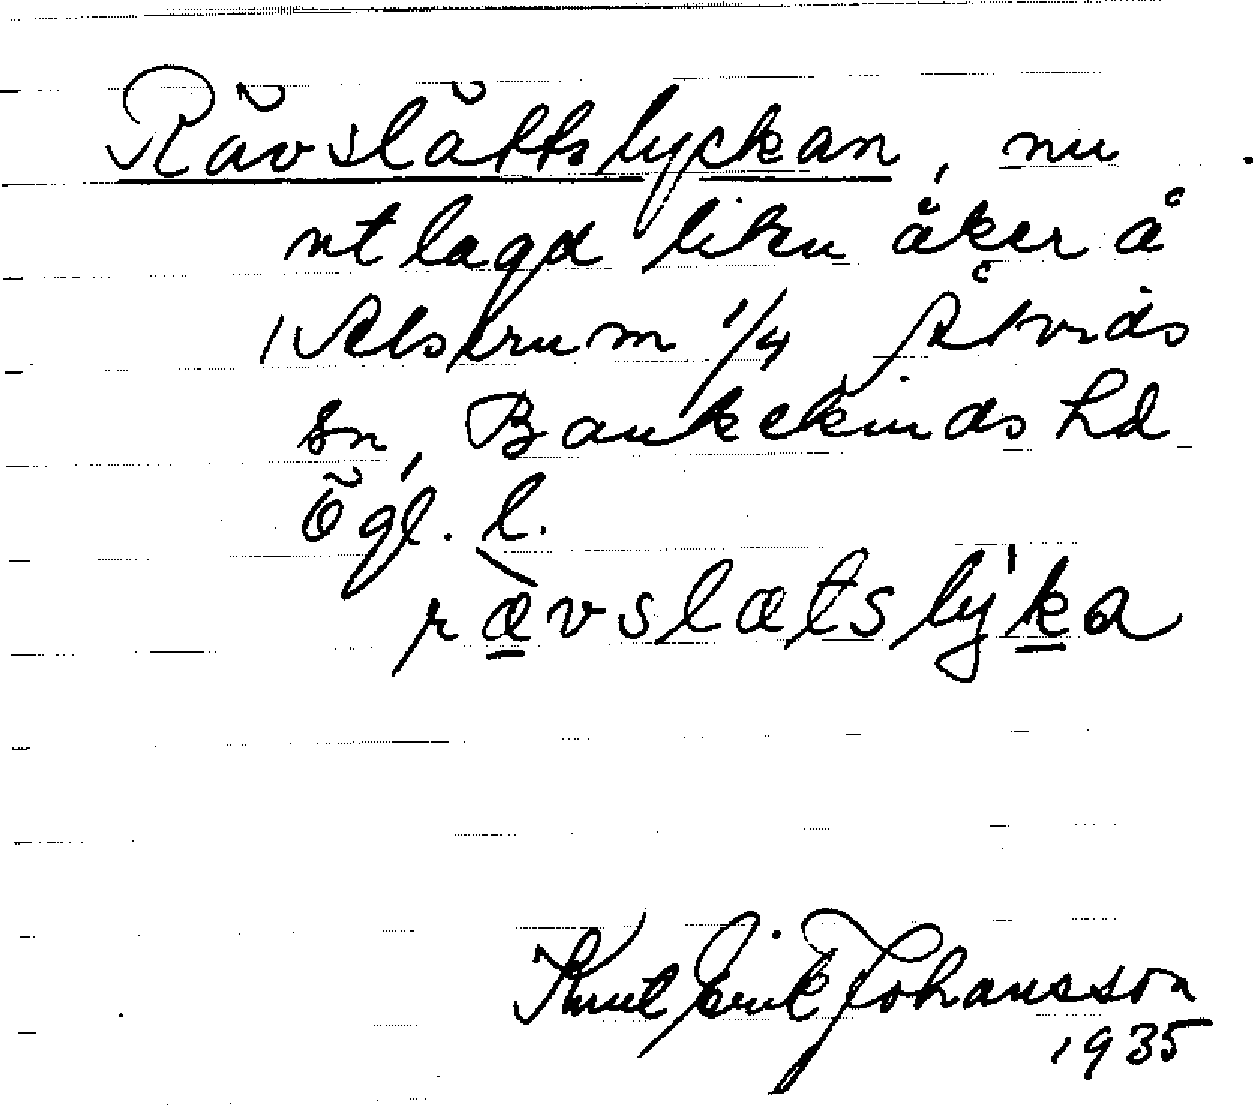 Rävslättslyckan, nu
utlagd liten åker å
Alstrum 1/4 Åtvids
sn, Bankekinds hd
Ögl. l.
rævslætslýka
Knut Erik Johansson
1935